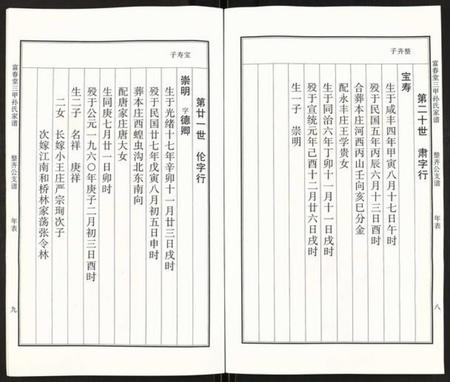 富春堂三甲孙氏家谱 整齐公支谱 年表 八
整齐子
第二十世 肃字行
宝寿
生于咸丰四年甲寅八月十七日午时
殁于民国五年丙辰六月十三日戌时
合葬本庄河西丙山壬向亥巳分金
配永丰庄王学贵女
生于同治六年丁卯十一月十一日戌时
殁于宣统元年己酉十二月廿六日戌时
生一子 崇明
宝寿子
第廿一世 伦字行
崇明 字德卿
生于光绪十七年辛卯十一月廿三日戌时
殁于民国廿七年戊寅八月初五日申时
葬本庄西蝗虫沟北东南向
配唐家庄唐大女
生同庚七月廿一日卯时
殁于公元一九六〇年庚子二月初三日酉时
生二子 名祥 庚祥
二女 长嫁小王庄严宗珣次子
次嫁江南和桥林家荡张令林
富春堂三甲孙氏家谱 整齐公支谱 年表 九